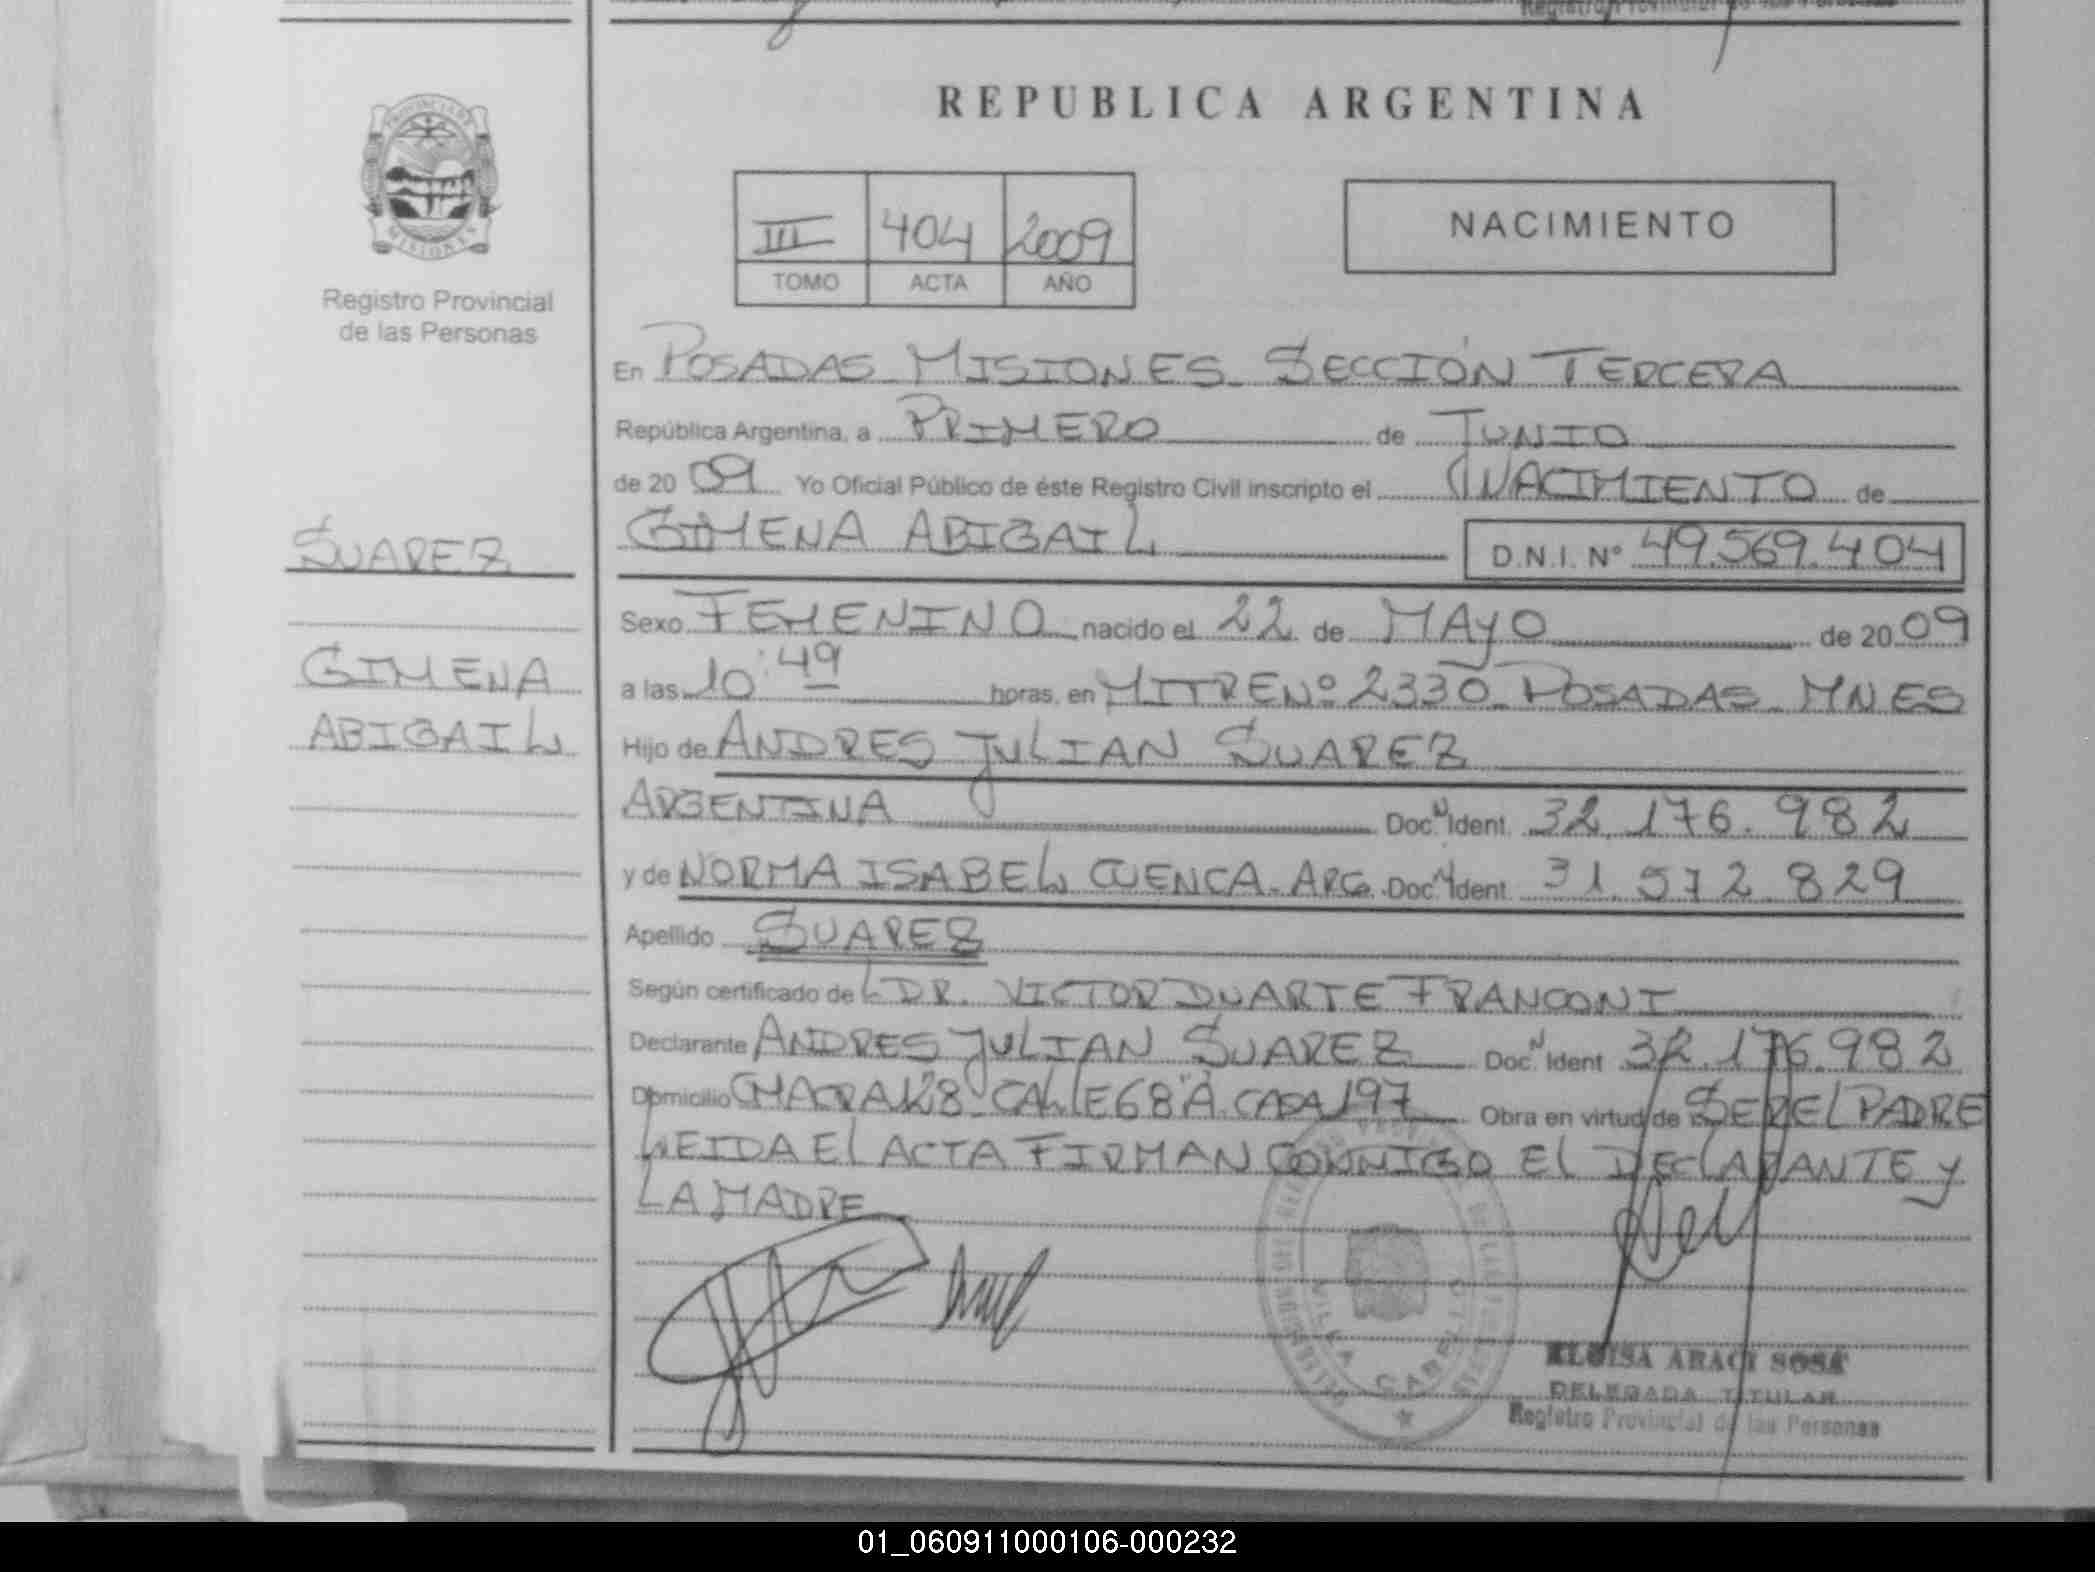 REPUBLICA ARGENTINA
PROVINCIA DE
MISIONES
Registro Provincial
de las Personas
III 404 2009
TOMO ACTA AÑO
NACIMIENTO
En POSADAS MISIONES SECCIÓN TERCERA
República Argentina, a PRIMERO de JUNIO
de 2009 Yo Oficial Público de éste Registro Civil inscripto el NACIMIENTO de
GIMENA ABIGAIL D.N.I. Nº 49.569.404
SUAREZ
GIMENA
ABIGAIL
Sexo FEMENINO nacido el 22 de MAYO de 2009
a las 10:49 horas, en MITRE Nº 2330 POSADAS MNES
Hijo de ANDRES JULIAN SUAREZ
ARGENTINA Doc. N Ident. 32.176.982
y de NORMA ISABEL CUENCA. ARG. Doc. N Ident. 31.572.829
Apellido SUAREZ
Según certificado de L DR. VICTOR DUARTE FRANCONI
Declarante ANDRES JULIAN SUAREZ Doc. N Ident 32.176.982
Domicilio CHACRA 128 CALLE 68 A CASA 197 Obra en virtud de SER EL PADRE
LEIDA EL ACTA FIRMAN CONMIGO EL DECLARANTE Y
LA MADRE
VILLA CABELLO
ELOISA ARACI SOSA
DELEGADA TITULAR
Registro Provincial de las Personas
01_060911000106-000232